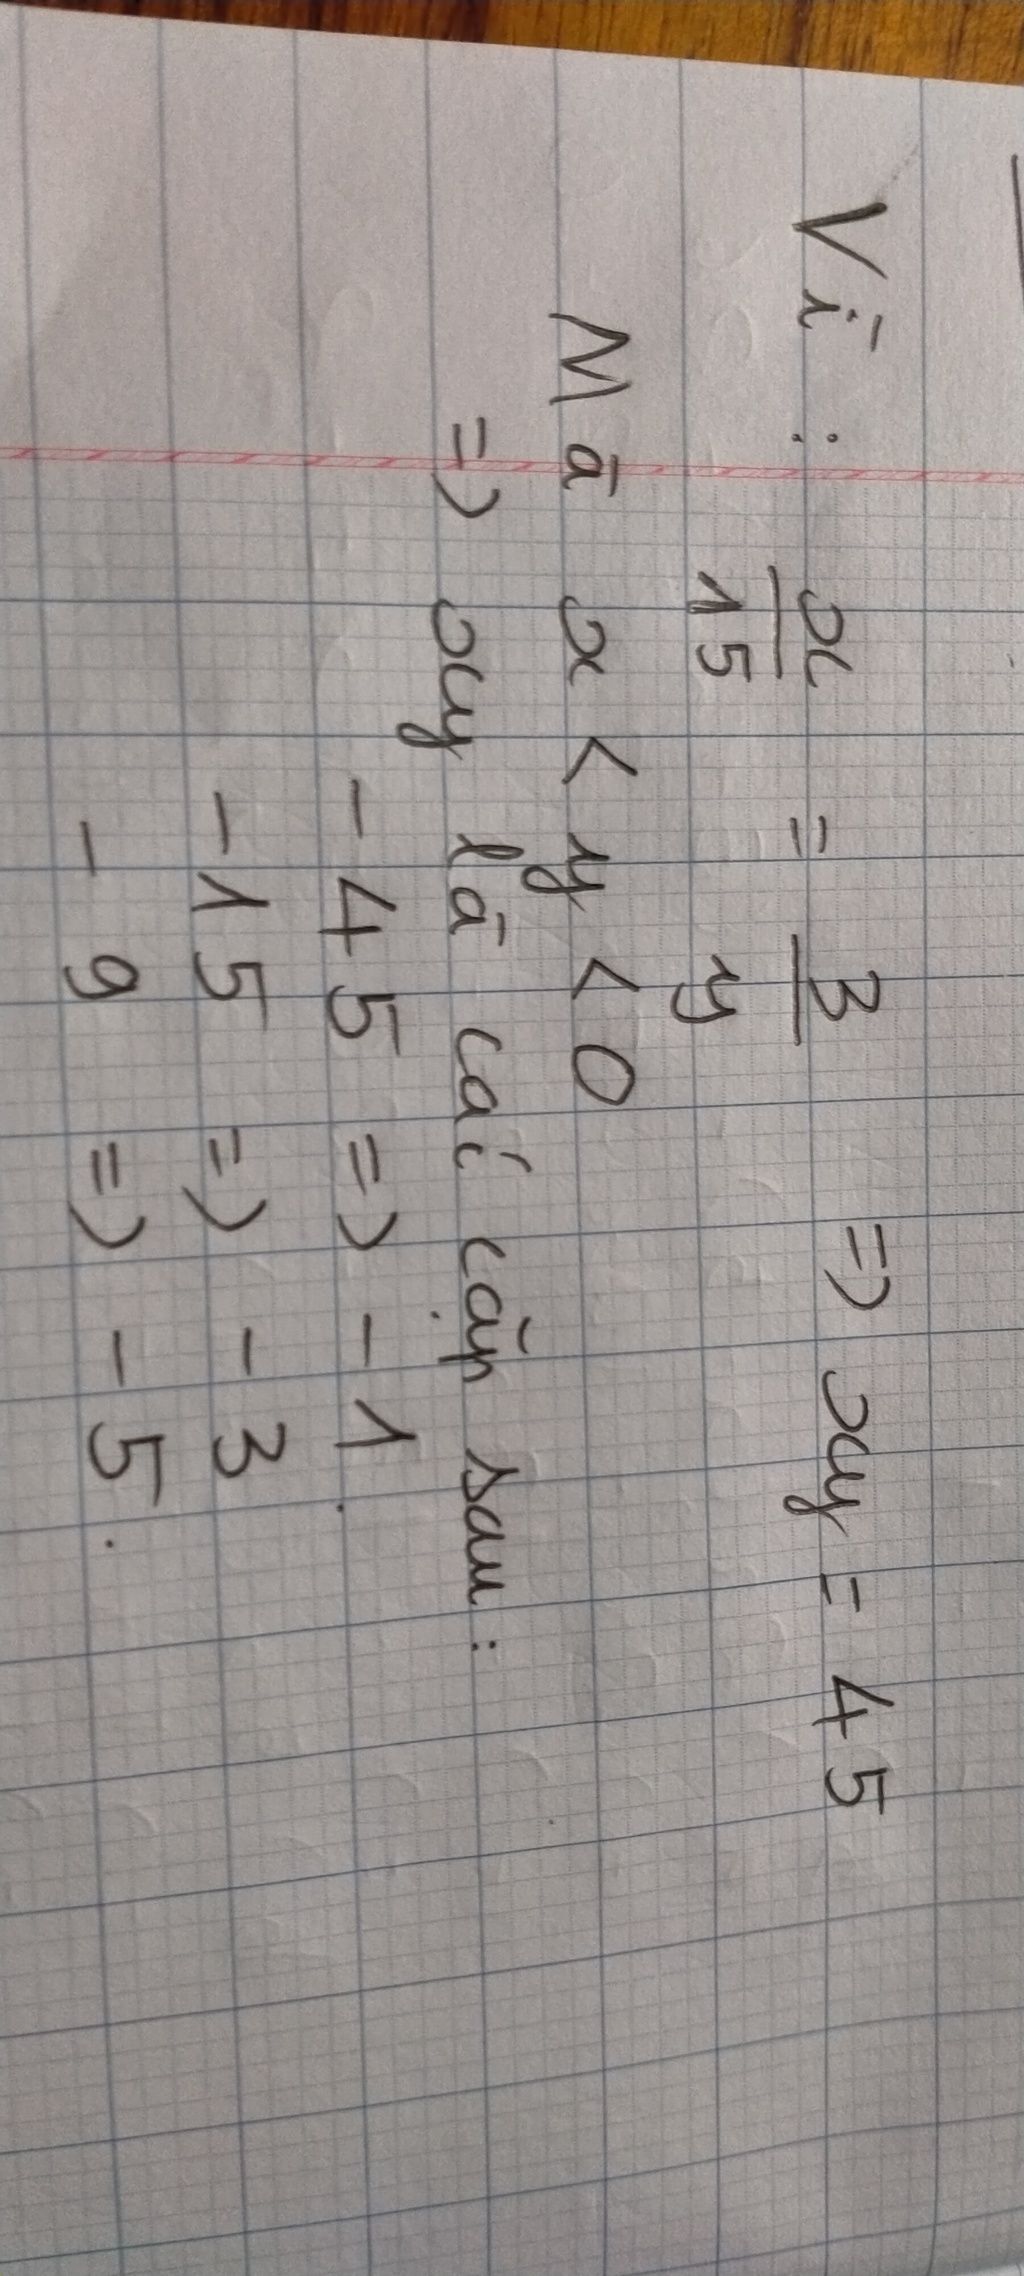 Vì : x/15 = 3/y => xy = 45
Mà x < y < 0
=> xy là các cặp sau :
- 45 => - 1.
- 15 => - 3
- 9 => - 5.